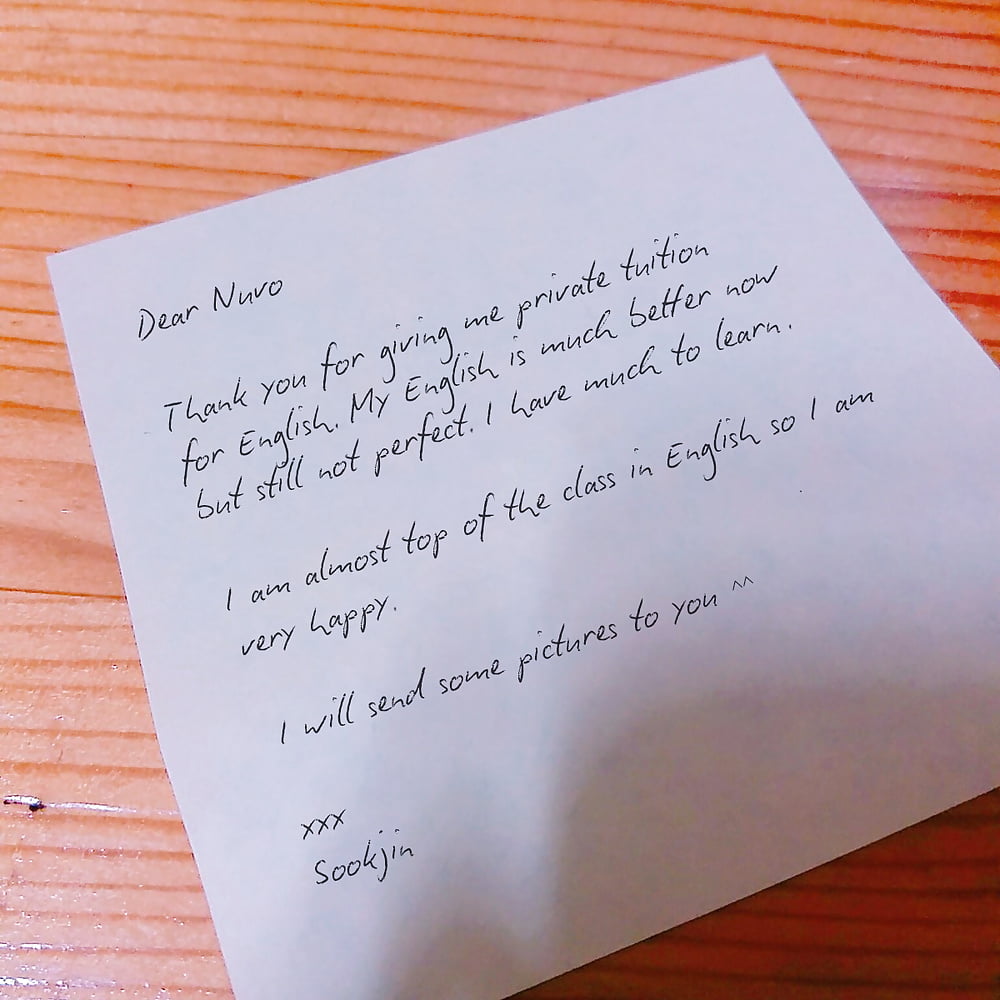 Dear Nuvo
Thank you for giving me private tuition
for English. My English is much better now
but still not perfect. I have much to learn.
I am almost top of the class in English so I am
very happy.
I will send some pictures to you ^^
xxx
Sookjin